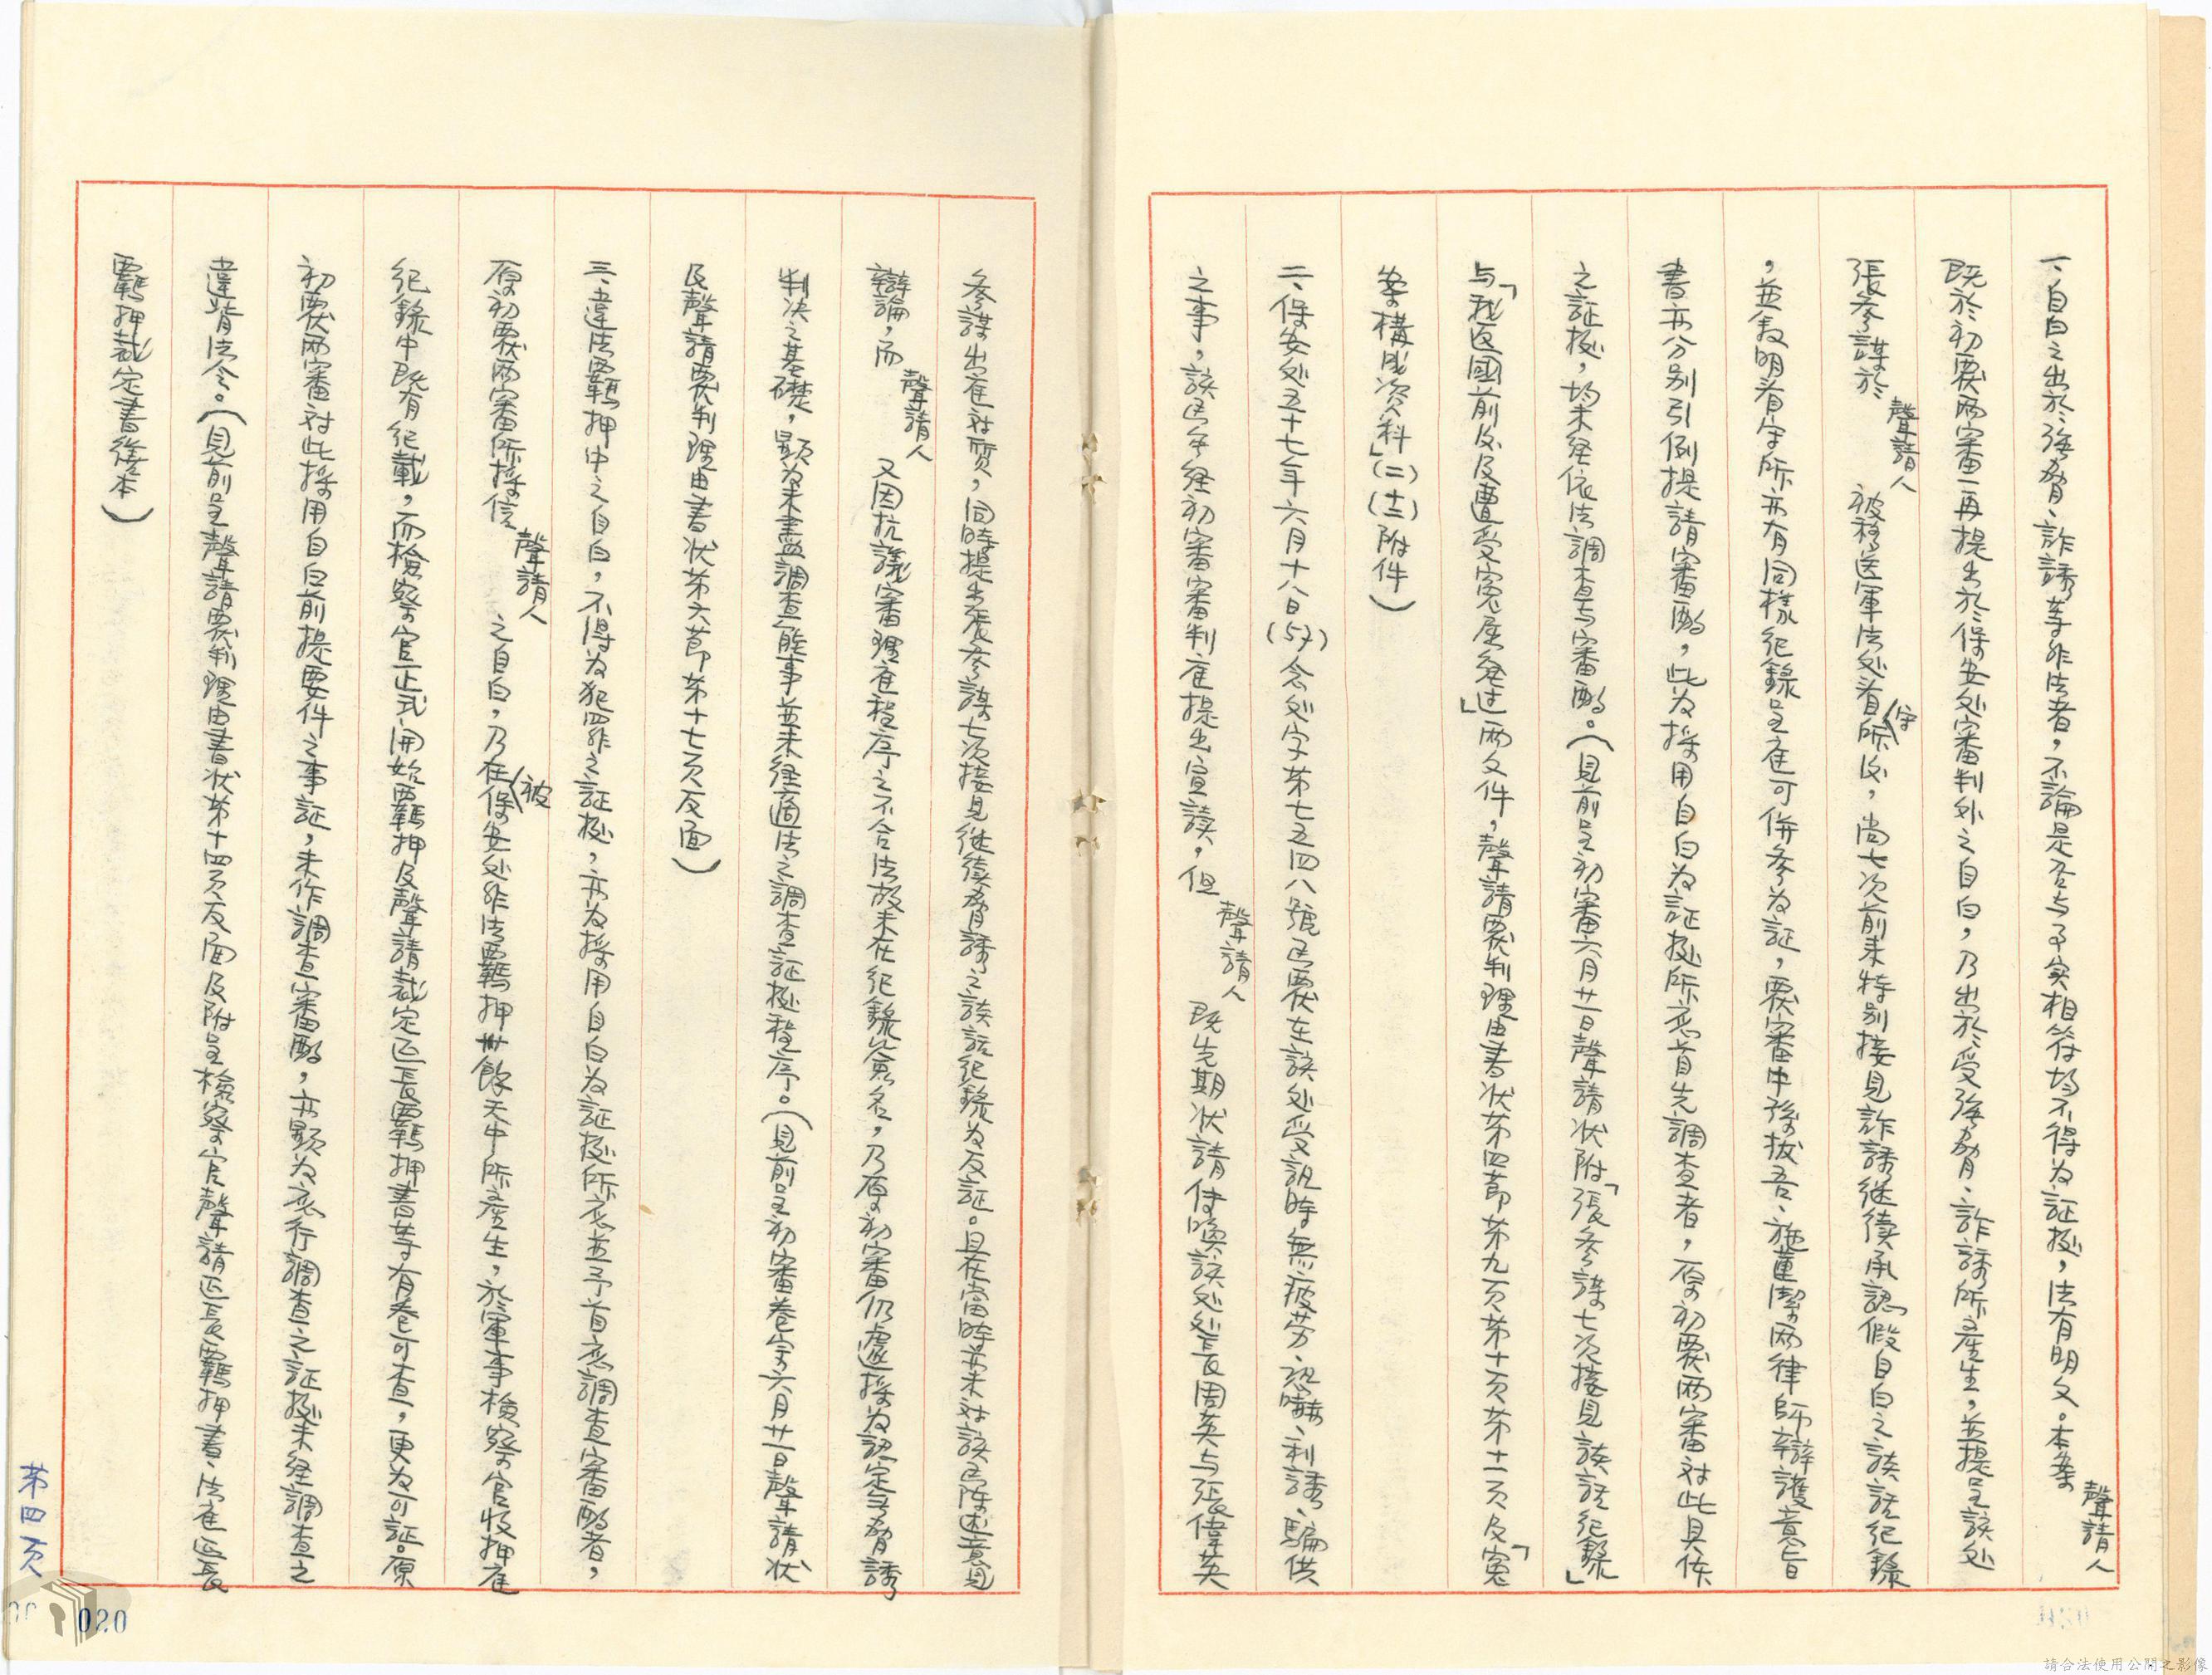 一、自白之出於強脅、詐誘等非法者，不論是否与事实相符均不得为証据，法有明文。本案聲請人
既於初覆两審一再提出於保安处審判处之自白，乃出於受強脅、詐誘所產生，並提呈該处
張參謀於聲請人被移送軍法处看守所後，尚七次前来特別接見詐誘继續承認假自白之談話纪錄
，並敘明看守所亦有同樣纪錄呈庭可併參为証，覆審中孫拔吾、施薰潔两律師辯護意旨
書亦分别引例提請審酌，此为採用自白为証据所应首先調查者，原初覆两審对此具体
之証据，均未经依法調查与審酌。（見前呈初審六月廿一日聲請状附「張參謀七次接見談話纪錄」
与「我返國前後及遭受寃屈经过」两文件，聲請覆判理由書状第四節第九页第十页第十一页及「寃
案構成资料」（二）（十二）附件）
二、保安处五十七年六月十八日(57)念处字第七五四八號函覆在該处受訊時無疲劳、恐嚇、利誘、騙供
之事，該函虽经初審審判庭提出宣讀，但聲請人既先期状請传喚該处处長周英与張偉英
參謀出庭对质，同時提出張參謀七次接見继續脅誘之談話纪錄为反証。且在當時並未对該函陈述意見
辯論，而聲請人又因抗議審理庭程序之不合法故未在纪錄簽名，乃原初審仍遽採为認定無脅誘
判决之基礎，顯为未盡調查能事並未经適法之調查証据程序。（見前呈初審卷宗六月廿一日聲請状
及聲請覆判理由書状第六節第十七页反面）
三、違法羈押中之自白，不得为犯罪之証据，亦为採用自白为証据所应並予首应調查審酌者，
原初覆两審所採信聲請人之自白，乃在被保安处非法羈押卅餘天中所產生，於軍事檢察官收押庭
纪錄中既有纪載，而檢察官正式開始羈押及聲請裁定延長羈押書等有卷可查，更为可証。原
初覆两審对此採用自白前提要件之事証，未作調查審酌，亦顯为应行調查之証据未经調查之
違背法令。（見前呈聲請覆判理由書状第十四页反面及附呈檢察官聲請延長羈押書、法庭延長
羈押裁定書繕本）
第四页
020
請合法使用公開之影像